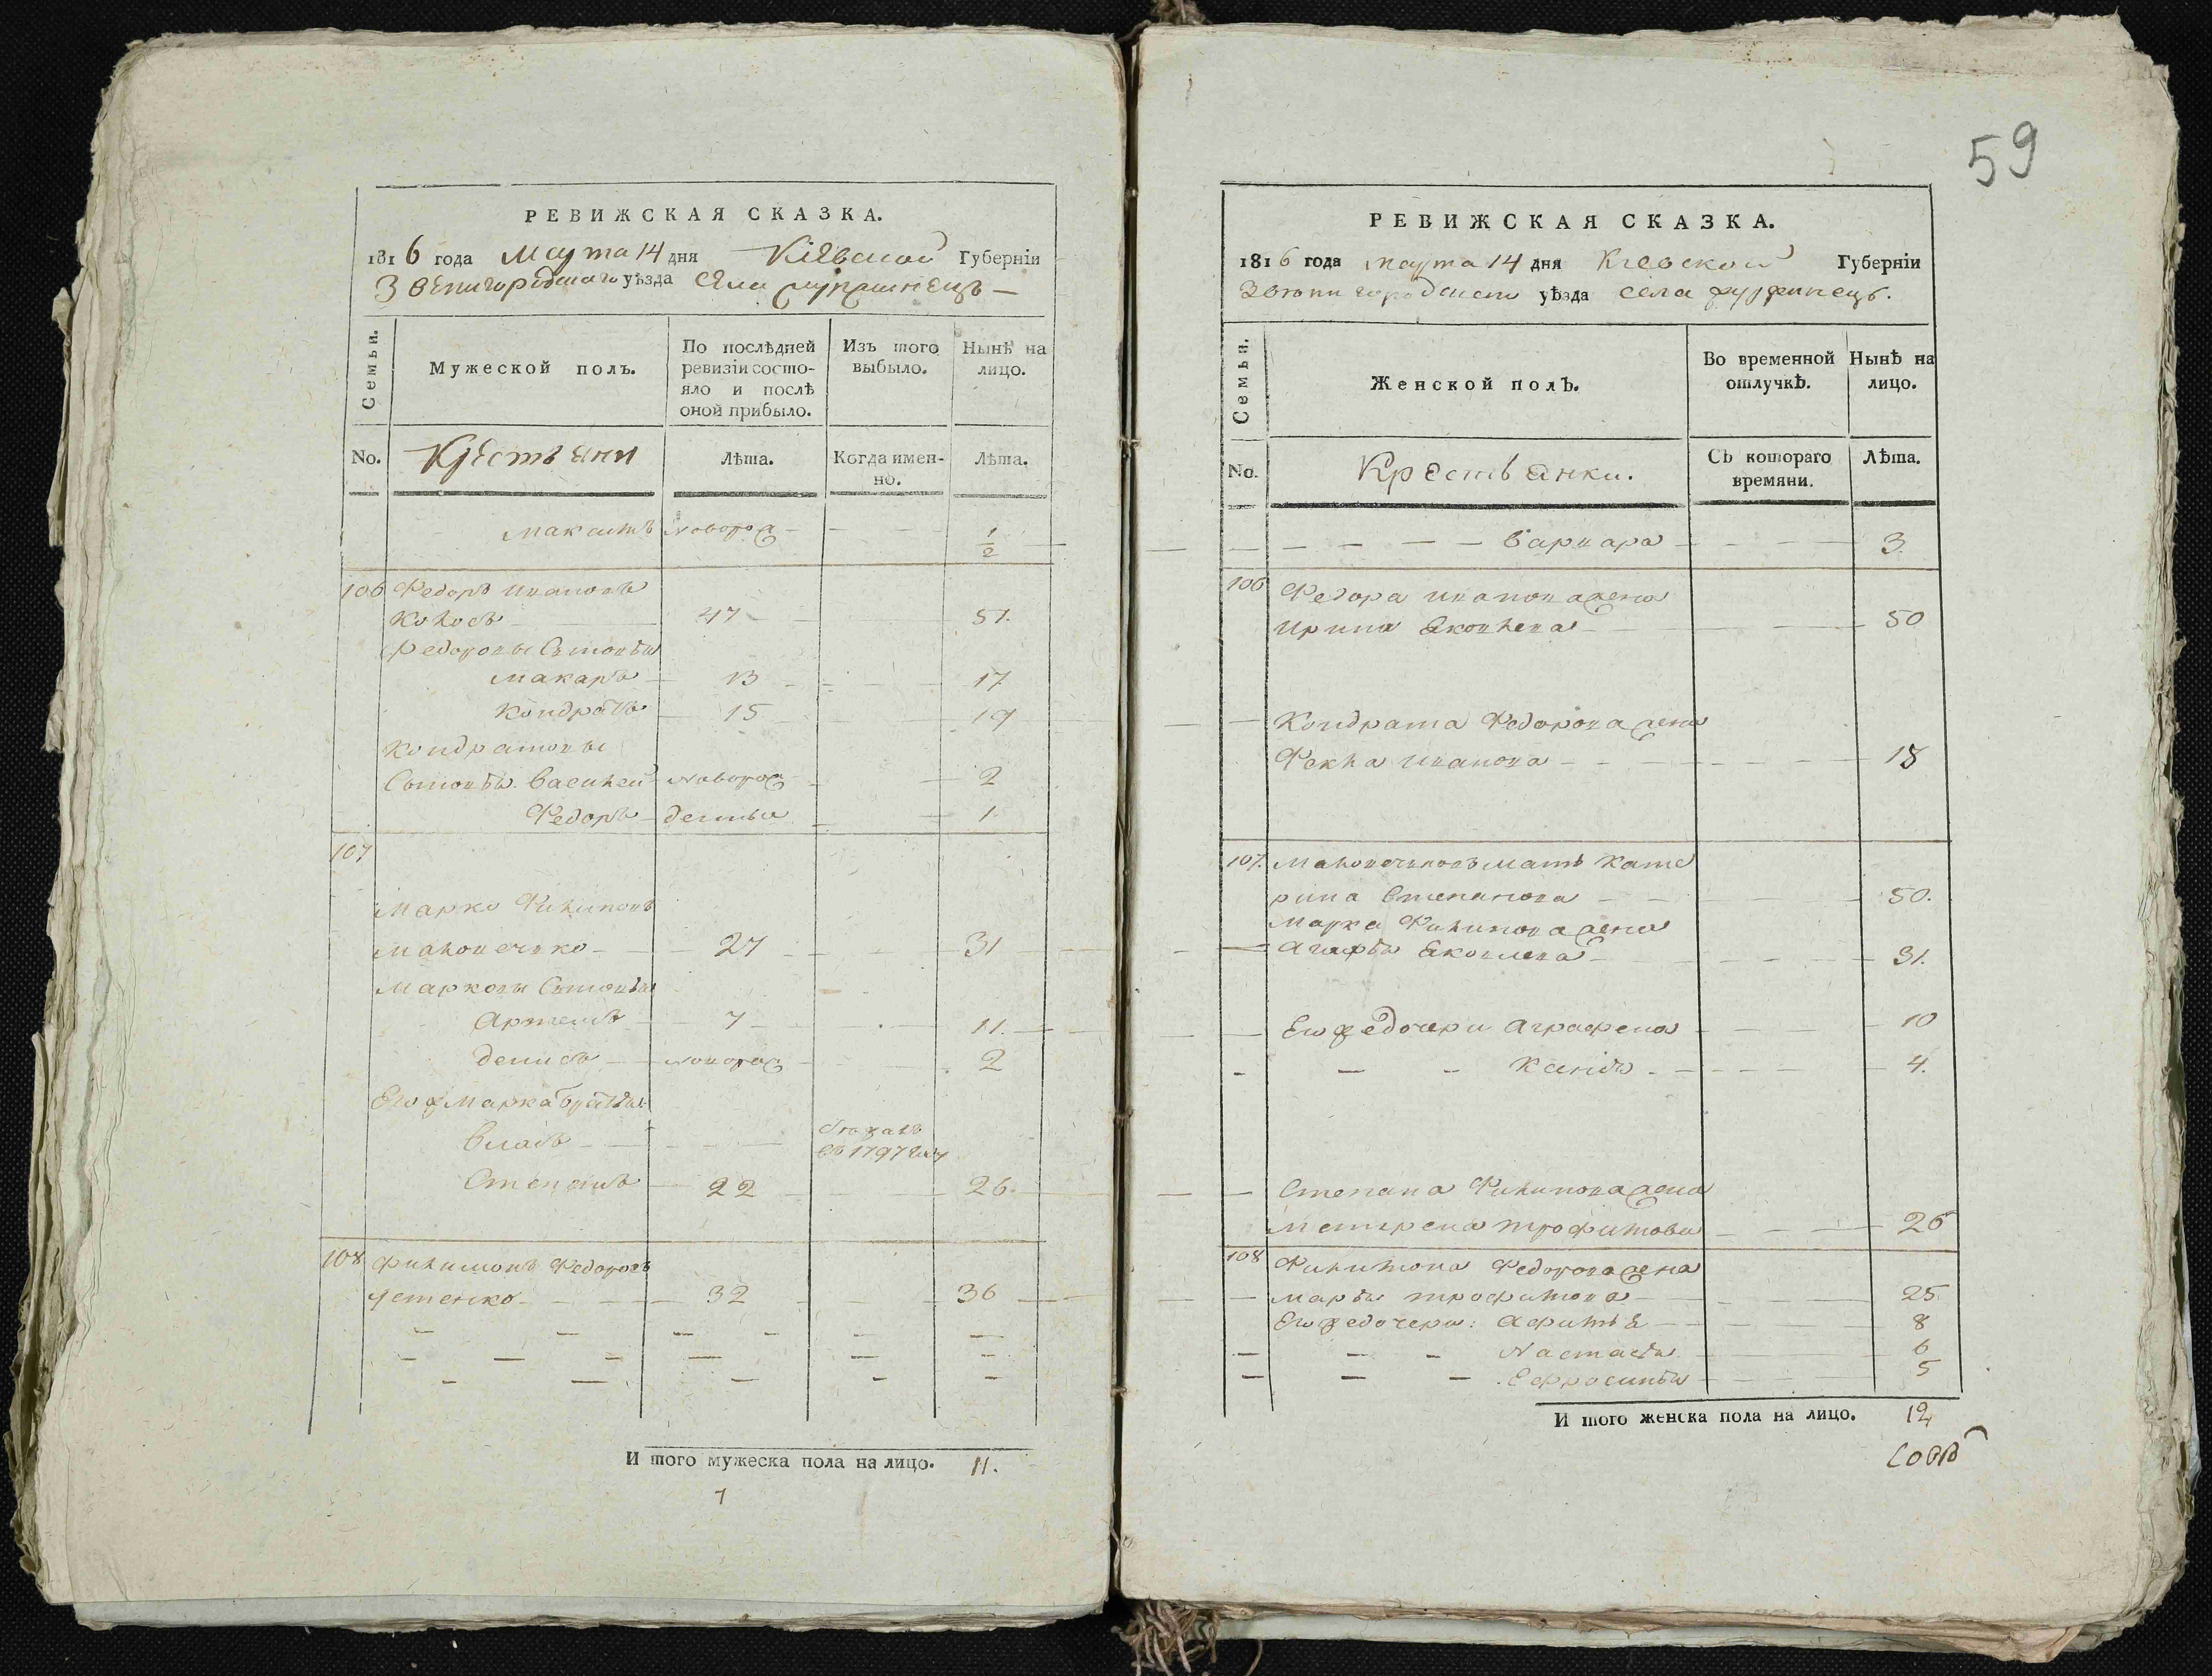 РЕВИЖСКАЯ СКАЗКА.
1816 года Марта 14 дня Кіевской Губерніи
Звенигородскаго уѣзда села
Семьи.
Мужеской полъ.
По послѣдней ревизіи состояло и послѣ оной прибыло.
Изъ того выбыло.
Нынѣ на лицо.
No.
Крестьяни
Лѣта.
Когда именно.
Лѣта.
Максимъ новорож 1/2
106 Федоръ Ивановъ
47 51.
Федоровы Сыновья
Макаръ 13 17
Кондратъ 15 19
Кондратовы
Сыновья Василей новорож 2
Федоръ денны 1.
107
Марко Филиповъ
Маковечко 27 31
Марковы Сыновья
Артемъ 7 11.
Денисъ новорож 2
Его ж Марка братья
Власъ бежалъ
въ 1797 году
Степанъ 22 26.
108 Филимонъ Федоровъ
32 36
И того мужеска пола на лицо. 11.
59
РЕВИЖСКАЯ СКАЗКА.
1816 года марта 14 дня Киевской Губерніи
уѣзда села
Семьи.
Женской полЪ.
Во временной отлучкѣ.
Нынѣ на лицо.
No.
Крестьянки.
Съ котораго времяни.
Лѣта.
Варвара 3.
106 Федора Иванова жена
Ирина Яковлева 50
Кондрата Федорова жена
Фекла Иванова 18
107. мать Кате
рина Степанова 50.
Марка Филипова жена
Агафья Яковлева 31.
Его ж дочери Аграфена 10
4.
Степана Филипова жена
Матрена Трофимова 26
108 Филимона Федорова жена
Марья Трофимова 25
Его ж дочери: Афимья 8
Настасья 6
Ефросинья 5
И того женска пола на лицо. 12